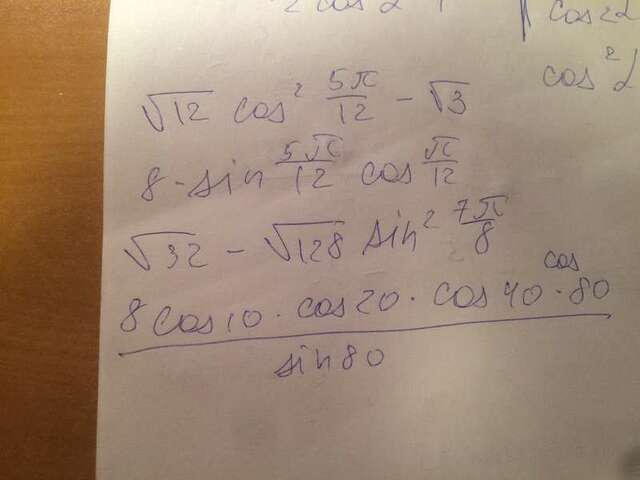 2 cos α
cos 2α
cos² α
√12 cos² 5π/12 − √3
8 · sin 5π/12 cos π/12
√32 − √128 sin² 7π/8
8 cos 10 · cos 20 · cos 40 · cos 80
sin 80